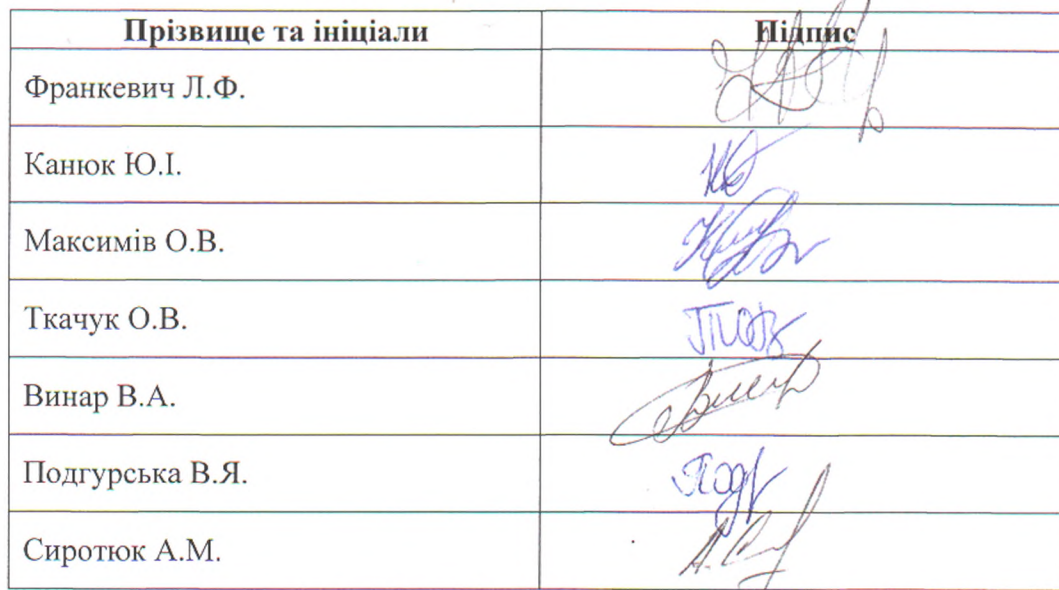 Прізвище та ініціали Підпис
Франкевич Л.Ф.
Канюк Ю.І.
Максимів О.В.
Ткачук О.В.
Винар В.А.
Подгурська В.Я.
Сиротюк А.М.